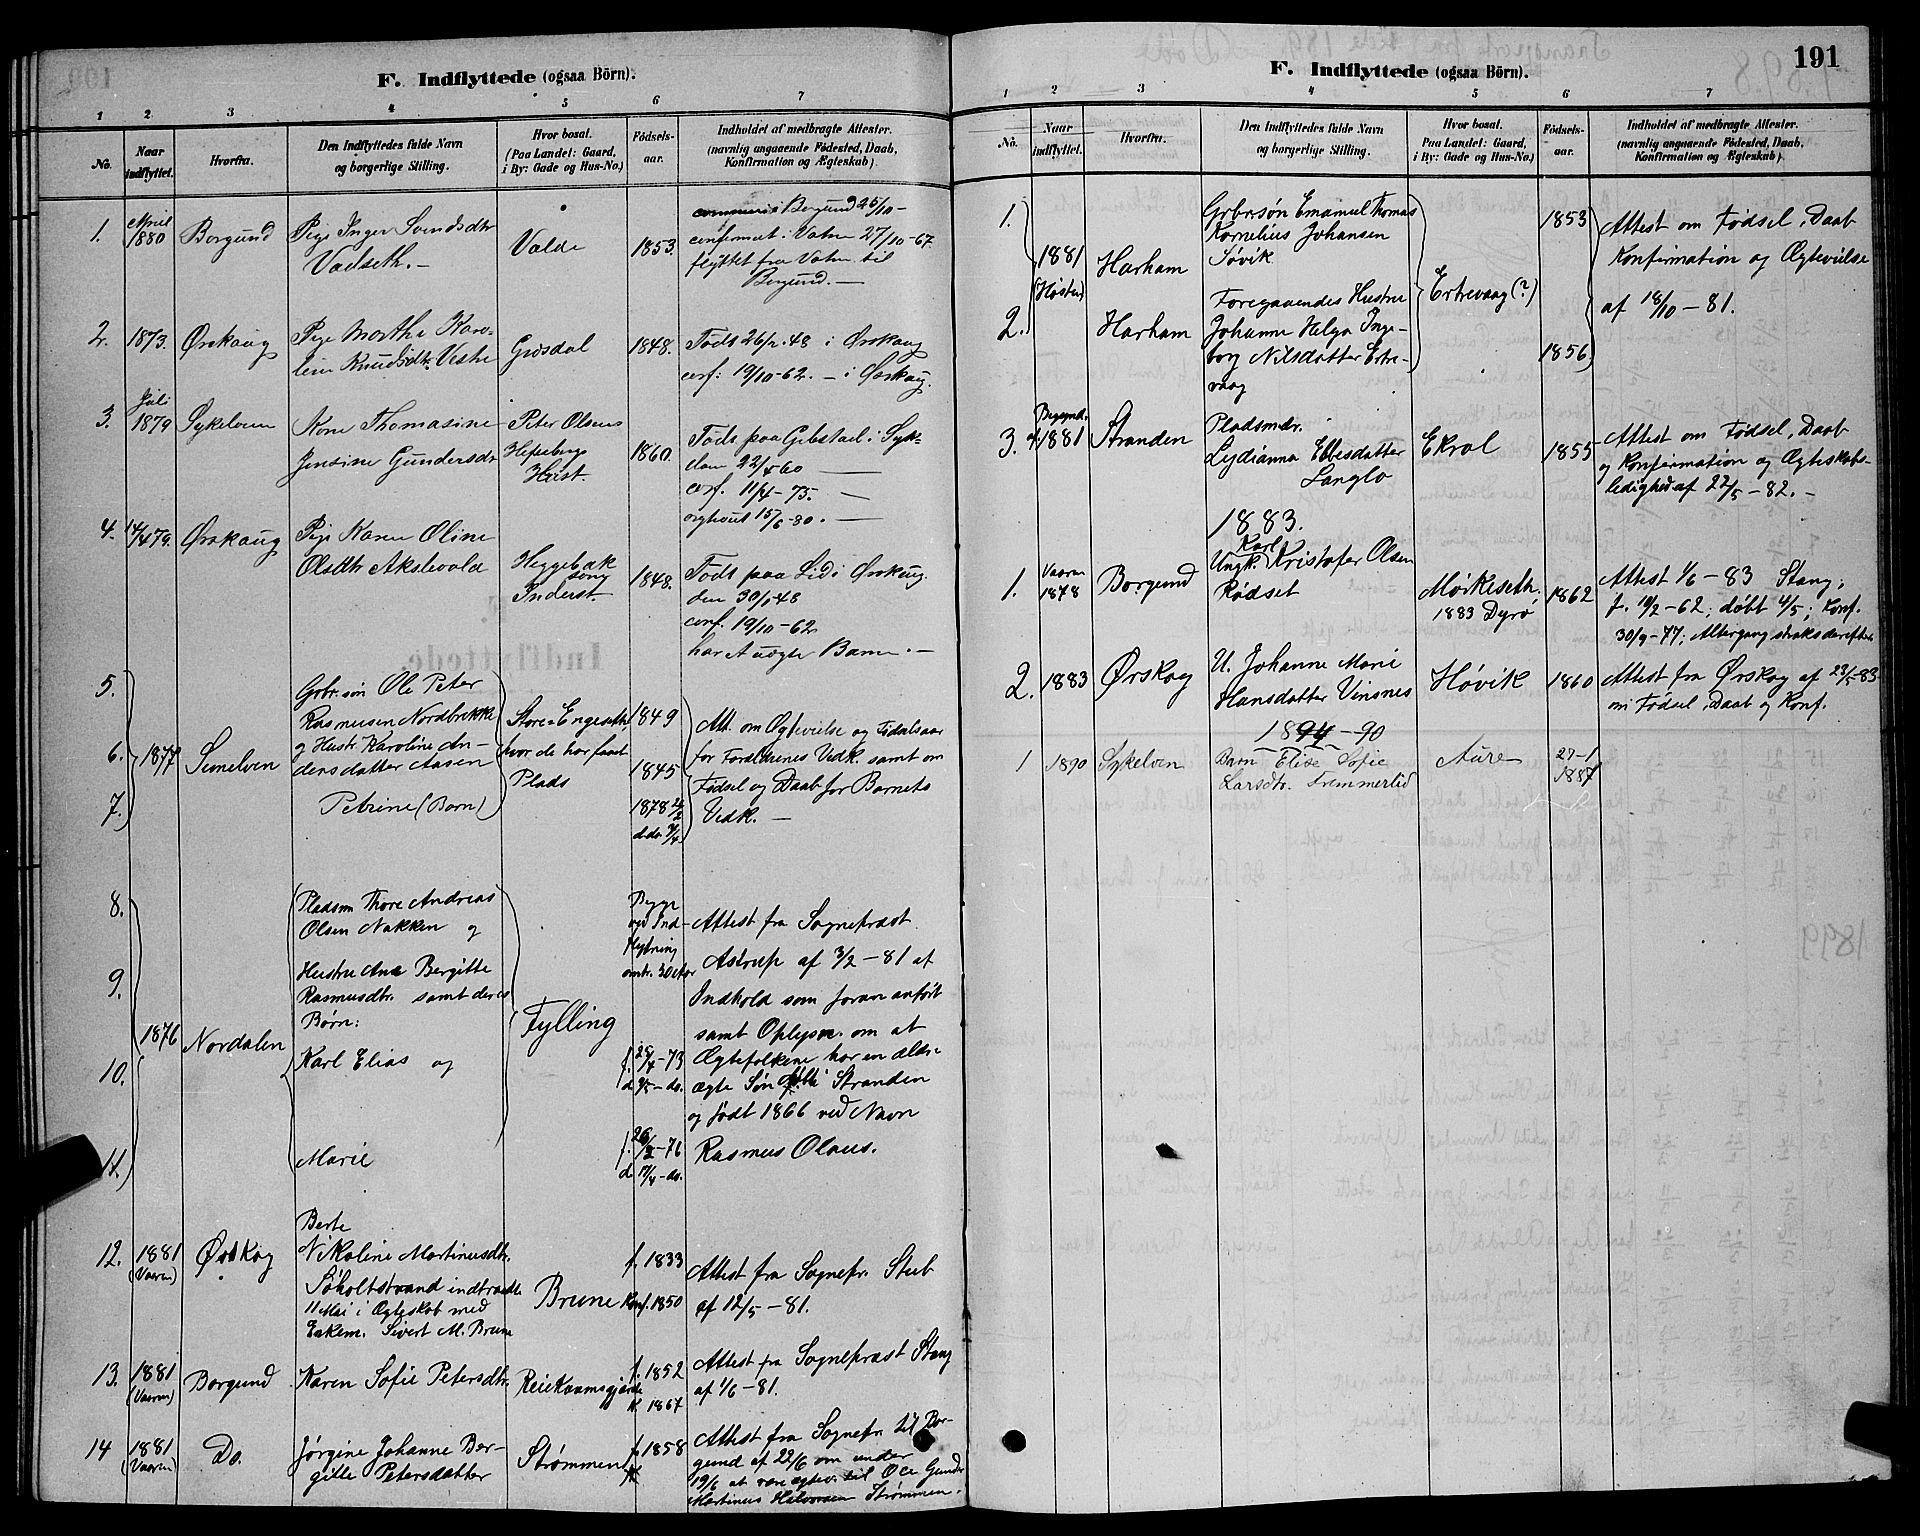 F. Indflyttede (ogsaa Börn).
1 2 3 4 5 6 7
No. Naar indflyttet. Hvorfra. Den Indflyttedes fulde Navn og borgerlige Stilling. Hvor bosat. (Paa Landet: Gaard, i By: Gade og Hus-No.) Födsels-aar. Indholdet af medbragte Attester. (navnlig angaaende Födested, Daab, Konfirmation og Ægteskab).
1. April 1880 Borgund Pige Inger Svendsdtr Vadseth. — Valde 1853. Borgund 25/10 —
confirmert i Vatne 27/10-67
flyttet fra Vatne til
Borgund. —
2. 1873. Ørskaug Pige Marthe Karo-
line Knudsdtr. Vestre Grøsdal 1848. Födt 26/2.48 i Ørskaug
conf: 19/10-62. — i Ørskaug.
3. Juli 1879 Sykelven Kone Thomasine
Jensine Gundersdtr Peter Olsens
Hust. 1860. Födt paa Gebstad i Syk-
den 22/4 60 —
conf. 11/4-75. —
15/6-80. —
4. 14/4 79. Ørskaug Pige Karen Oline
Olsdtr Akslevold Heggebak
Inderst. 1848. Födt paa Lid i Ørskaug.
den 30/1 48
conf. 19/10-62
har 1 uægte Barn. —
5. Gbr.søn Ole Peter
Rasmusen Nordbrekke
6. 1877 Sunelven og Hustr Karoline An-
dersdatter Aasen
7. Petrine (Barn)
Store-Engeseth,
hvor de har faaet
Plads
1849
1845
1878 2/2
dbr. 7/4
Att. om Ægtevielse og Fødselsaar
for Forældrenes Vedk. samt om
Fødsel og Daab for Barnets
Vedk. —
8. Pladsm Thore Andreas
Olsen Nakken og
9. Hustru Ane Bergitte
Rasmusdtr. samt deres
Børn:
1876 Nordalen
10. Karl Elias og
11. Marie
Fylling
Begge
ved Ind-
flytning
omtr. 30 Aar
f. 29/4-73
d. 4/5-do.
f. 26/2-76
d. 17/4-do.
Attest fra Sognepræst
Astrup af 3/2-81 af
Indhold som foran anført
samt Oplysn. om at
Ægtefolkene har en ældre
ægte Søn født i Stranden
og født 1866 ved Navn
Rasmus Olaus.
12. 1881 (Vaaren) Ørskog Berte
Nikoline Martinusdtr.
Søholtstrand indtraadte
11 Mai i Ægteskab med
Enkem. Sivert M. Brune
Brune f. 1833
Konf. 1850
Attest fra Sognepr. Stub
af 12/5-81.
13. 1881 (Vaaren) Borgund Karen Sofie Petersdtr. Reiekaamsgjærde f. 1852
K. 1867
Attest fra Sognepræst Stang
af 1/6-81.
14 1881 (Vaaren) Do. Jørgine Johanne Ber-
gitte Petersdatter Strømmen f. 1858
Attest fra Sognepr. til Bor-
gund af 22/6 om under
19/6 at være ægtev. til Ole Gunder
Martinus Halvorsen Strømmen.
191
F. Indflyttede (ogsaa Börn).
1 2 3 4 5 6 7
No. Naar indflyttet. Hvorfra. Den Indflyttedes fulde Navn og borgerlige Stilling. Hvor bosat. Paa Landet: Gaard, i By: Gade og Hus-No.) Födsels-aar. Indholdet af medbragte Attester. (navnlig angaaende Födested, Daab, Konfirmation og Ægteskab).
1. 1881 (Høsten) Harham Gbrsøn Emanuel Thomas
Kornelius Johansen
Søvik 1853
2. Harham Foregaaendes Hustru
Johanne Helga Inge-
borg Nilsdatter Ertre-
vaag 1856
Ertrevaag (?)
Attest om Fødsel, Daab
Konfirmation og Ægtevielse
af 18/10-81.
3. Begynd. af 1881 Stranden Pladsmdr.
Lydianna Ellesdatter
Langlo Ekrol 1855 Attest om Fødsel, Daab
og Konfirmation og Ægteskabs-
ledighed af 22/5-82. —
1883.
1. Vaaren 1878 Borgund Ungk. Karl Kristofer Olsen
Rødset Mørkeseth.
1883 Dyrø 1862 Attest 1/6-83 Stang;
f. 19/2-62; døbt 4/5; Konf.
30/9-77; Altergang straks derefter
2. 1883 Ørskog U. Johanne Marie
Hansdatter Vinsnes Høvik 1860 Attest fra Ørskog af 23/5-83
om Fødsel, Daab og Konf.
1894-90
1 1890 Sykelven Barn Elise Sofie
Larsdtr. Fremmerlid Aure 27-1
1887